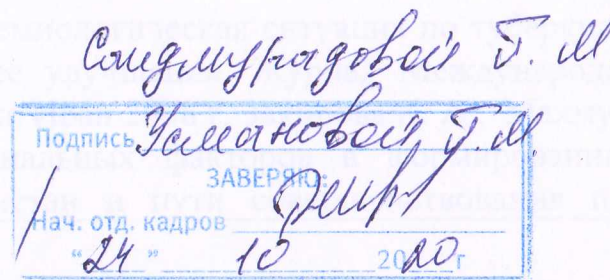 Саидмурадовой Г. М
Подпись Усмановой Г. М.
ЗАВЕРЯЮ:
Нач. отд. кадров
"24" 10 2020г